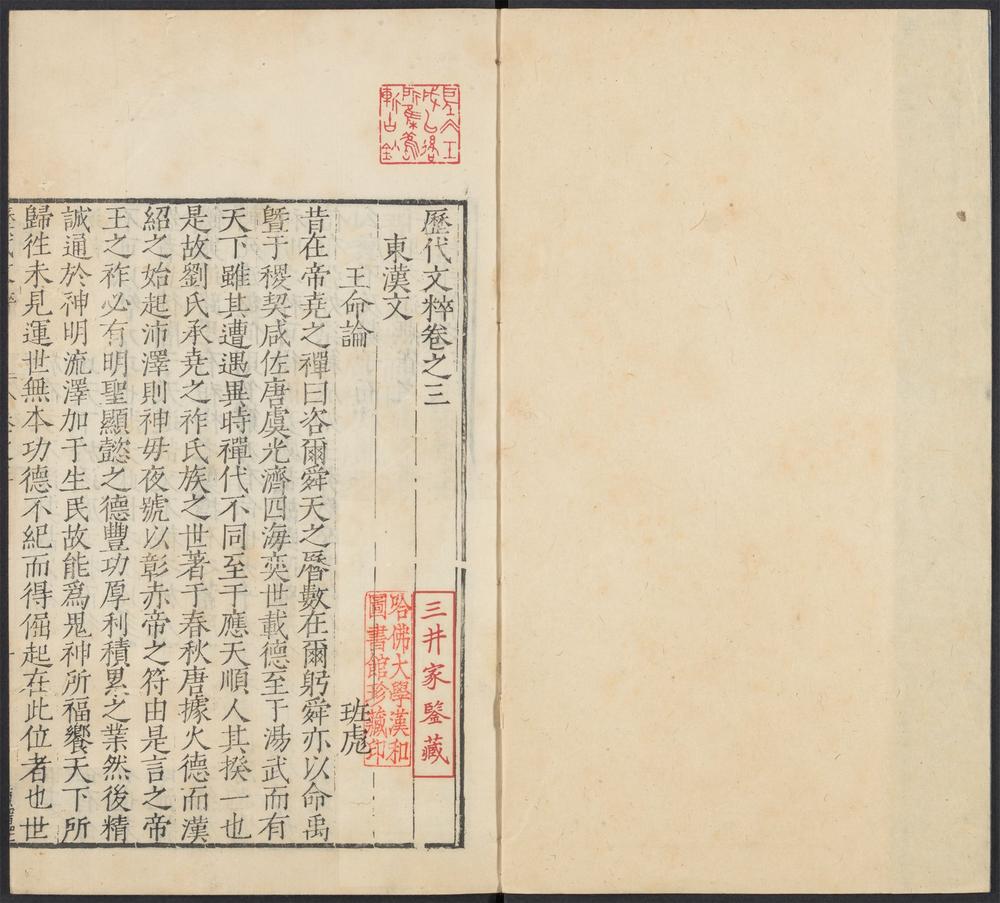 歷代文粹卷之三
東漢文
王命論 班彪
昔在帝堯之禪曰咨爾舜天之曆數在爾躬舜亦以命禹
曁于稷契咸佐唐虞光濟四海奕世載德至于湯武而有
天下雖其遭遇異時禪代不同至于應天順人其揆一也
是故劉氏承堯之祚氏族之世著于春秋唐據火德而漢
紹之始起沛澤則神毋夜號以彰赤帝之符由是言之帝
王之祚必有明聖顯懿之德豐功厚利積累之業然後精
誠通於神明流澤加于生民故能爲鬼神所福饗天下所
歸徃未見運世無本功德不紀而得倔起在此位者也世
三井家鑒藏
哈佛大學漢和
圖書館珍藏印